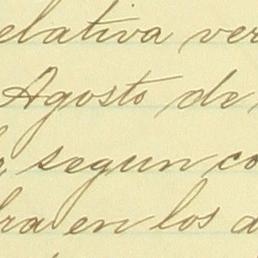 elativa ver
Agosto de
segun co
bra en los d